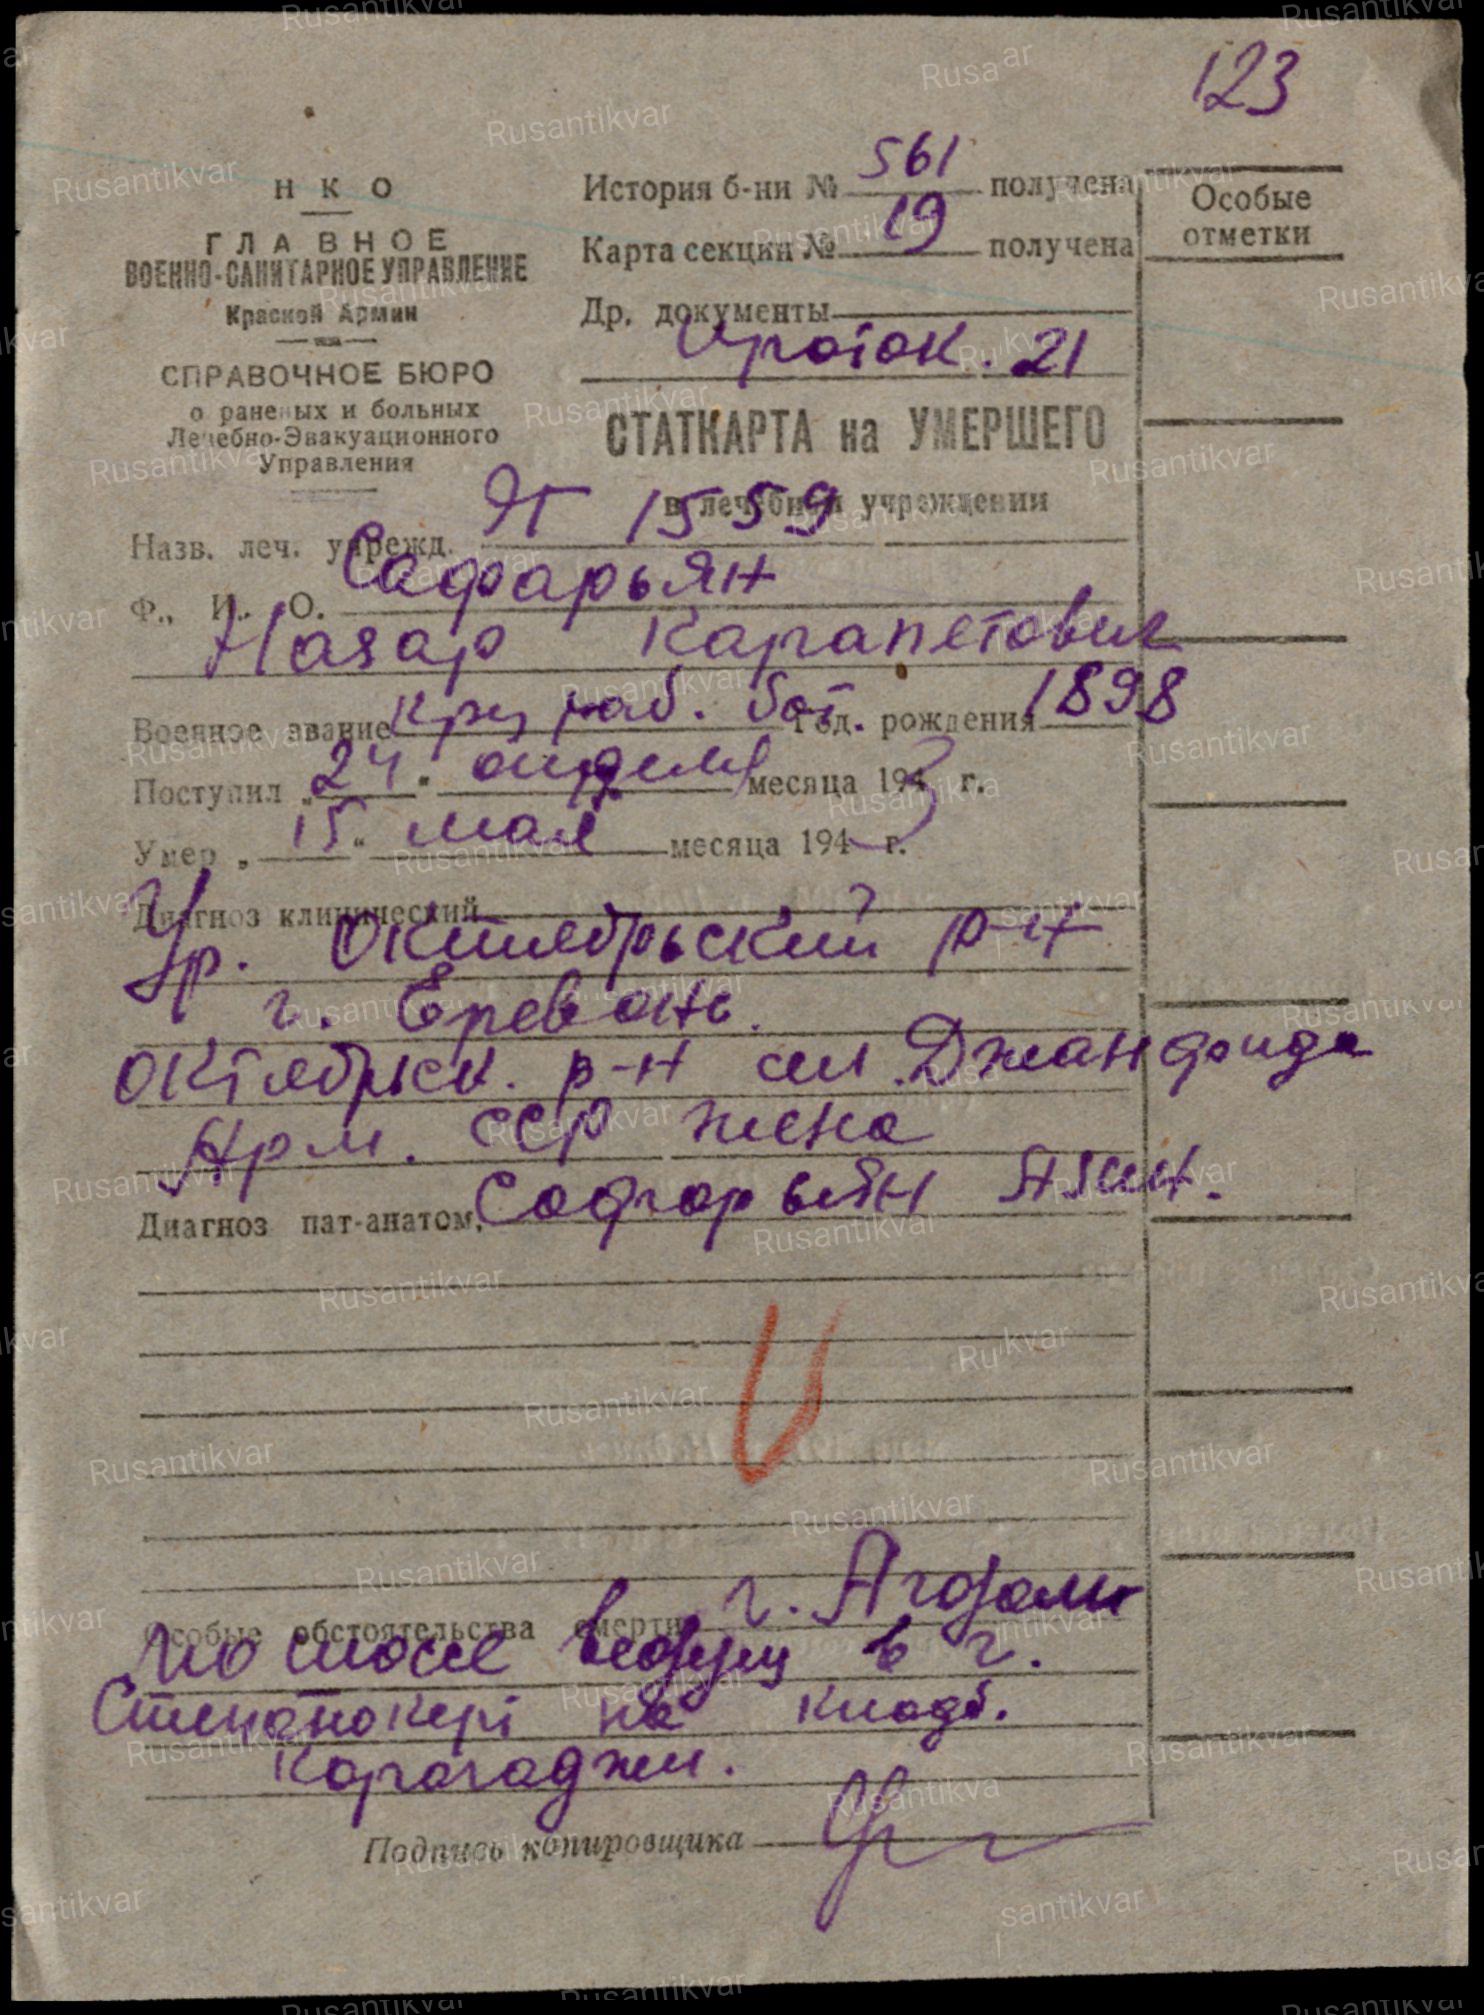 123
Н К О
ГЛАВНОЕ
ВОЕННО-САНИТАРНОЕ УПРАВЛЕНИЕ
Красной Армии
СПРАВОЧНОЕ БЮРО
о раненых и больных
Лечебно-Эвакуационного
Управления
История б-ни № 561 получена
Карта секции № 19 получена
Др. документы
Проток. 21
Особые
отметки
СТАТКАРТА на УМЕРШЕГО
в лечебном учреждении
Назв. леч. учрежд. ЭГ 1559
Ф., И., О. Сафарьян
Назар Карапетович
Военное звание кр-ц раб. бат. Год. рождения 1898
Поступил „24“ апреля месяца 1943 г.
Умер „15“ мая месяца 194 г.
Диагноз клинический
Ур. Октябрьский р-н
г. Еревань.
Октябрьск. р-н сел. Джанфида
Арм. ССР жена
Диагноз пат-анатом. Сафарьян
Особые обстоятельства смерти г. Агдам
по шоссе ведущ в г.
Степанокерт на кладб.
Карагаджи.
Подпись копировщика
Rusantikvar